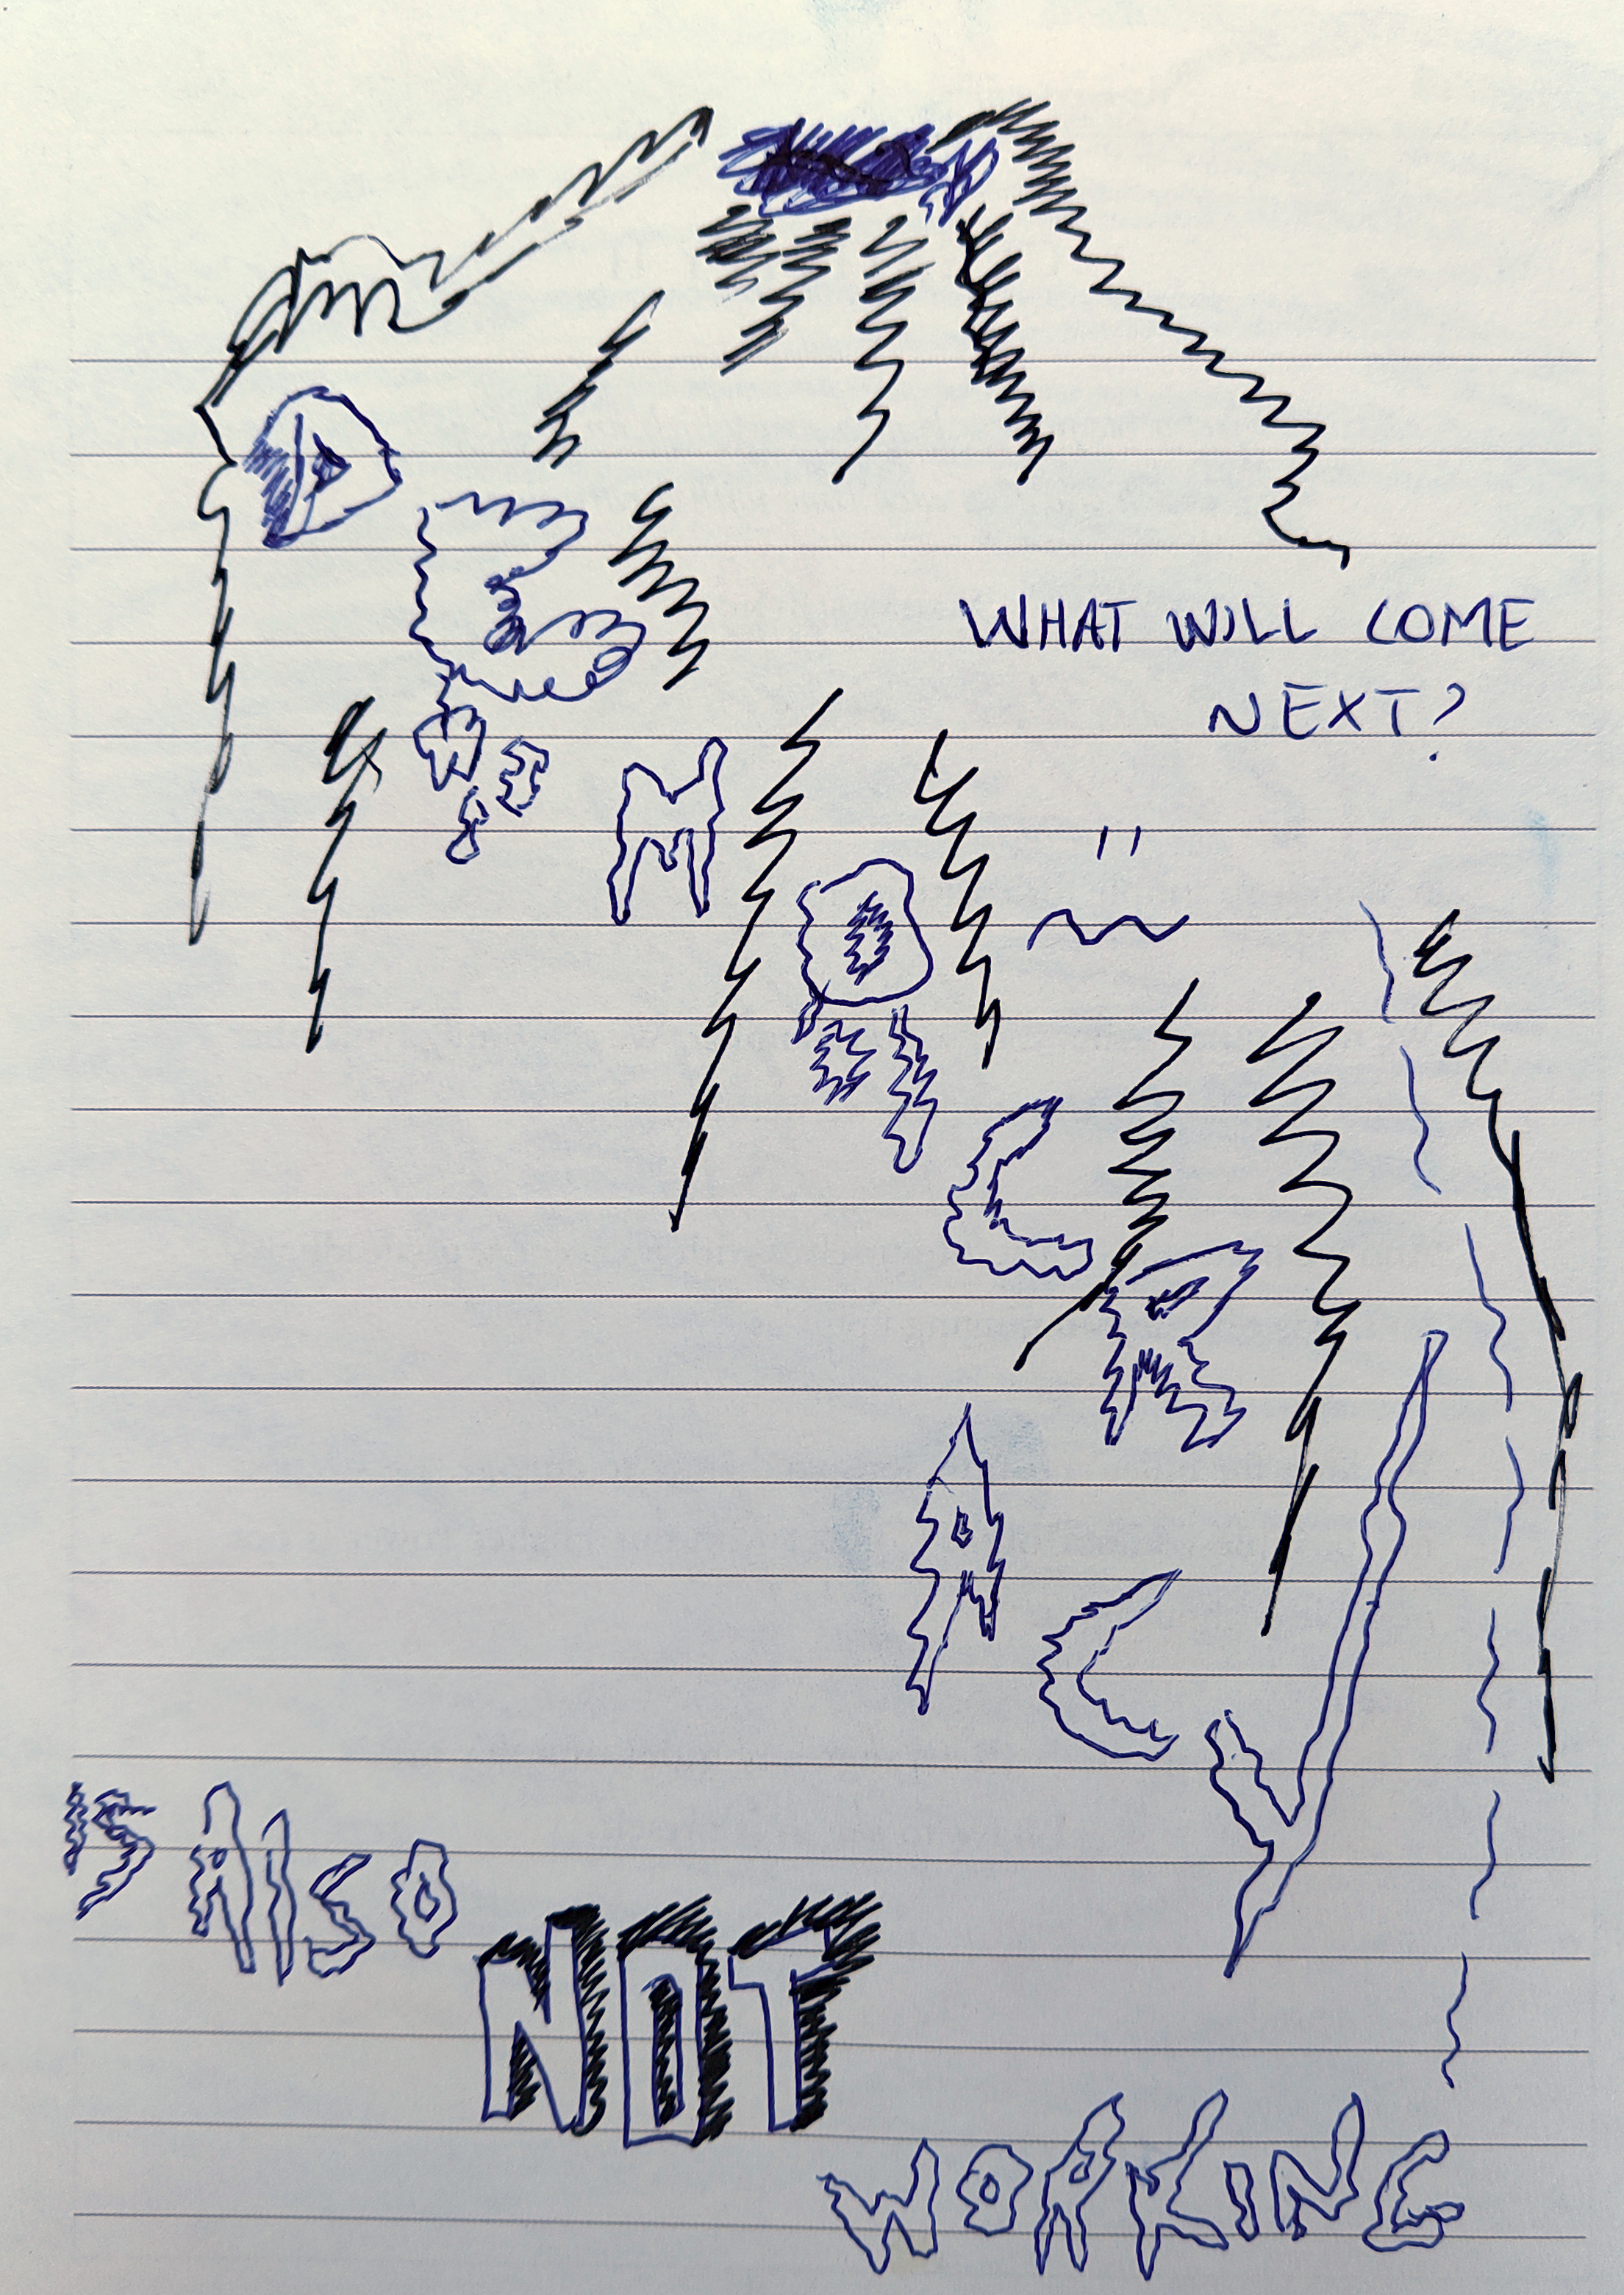 WHAT WILL COME
NEXT?
DEMOCRACY
IS ALSO
NOT
WORKING